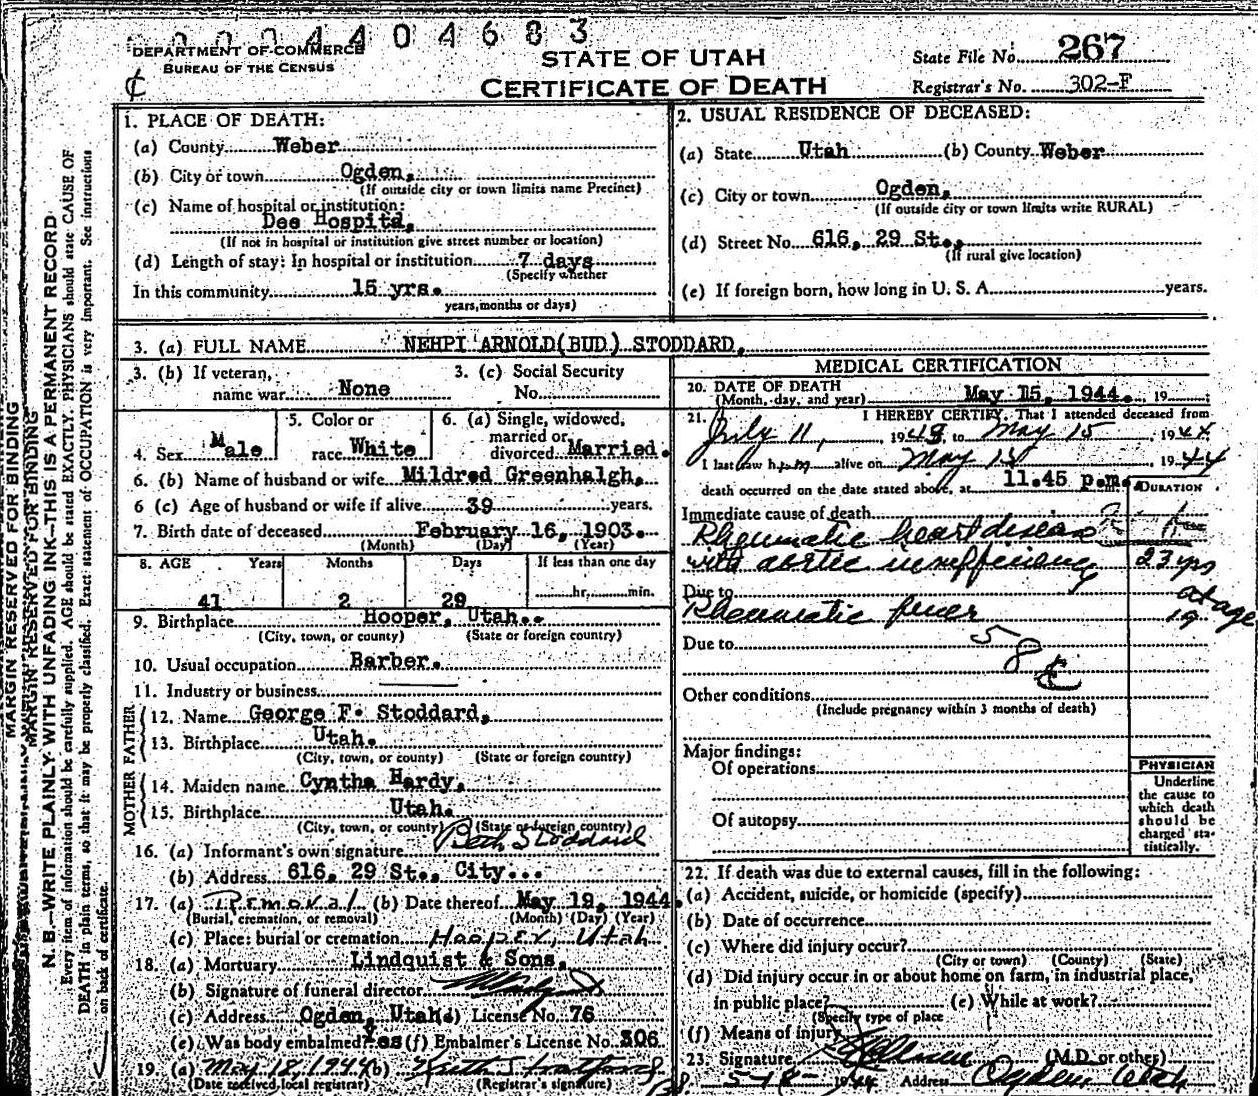 0004404683
DEPARTMENT OF COMMERCE
BUREAU OF THE CENSUS
STATE OF UTAH
CERTIFICATE OF DEATH
State File No. 267
Registrar's No. 302-F
1. PLACE OF DEATH:
(a) County Weber
(b) City or town Ogden,
(If outside city or town limits name Precinct)
(c) Name of hospital or institution:
Dee Hospital,
(If not in hospital or institution give street number or location)
(d) Length of stay: In hospital or institution 7 days
(Specify whether
In this community 15 yrs.
years, months or days)
2. USUAL RESIDENCE OF DECEASED:
(a) State Utah (b) County Weber
(c) City or town Ogden,
(If outside city or town limits write RURAL)
(d) Street No. 616, 29 St.,
(If rural give location)
(e) If foreign born, how long in U. S. A. years.
3. (a) FULL NAME NEHPI ARNOLD(BUD) STODDARD,
3. (b) If veteran,
name war None
3. (c) Social Security
No.
4. Sex Male
5. Color or
race White
6. (a) Single, widowed,
married or
divorced Married.
6. (b) Name of husband or wife Mildred Greenhalgh,
6 (c) Age of husband or wife if alive 39 years.
7. Birth date of deceased February 16, 1903.
(Month) (Day) (Year)
8. AGE Years Months Days If less than one day
41 2 29 hr. min.
9. Birthplace Hooper, Utah.
(City, town, or county) (State or foreign country)
10. Usual occupation Barber.
11. Industry or business
FATHER
12. Name George F. Stoddard,
13. Birthplace Utah.
(City, town, or county) (State or foreign country)
MOTHER
14. Maiden name Cyntha Hardy,
15. Birthplace Utah.
(City, town, or county) (State or foreign country)
16. (a) Informant's own signature Beth Stoddard
(b) Address 616, 29 St., City...
17. (a) Removal (b) Date thereof May 19, 1944.
(Burial, cremation, or removal) (Month) (Day) (Year)
(c) Place: burial or cremation Hooper, Utah
18. (a) Mortuary Lindquist & Sons,
(b) Signature of funeral director
(c) Address Ogden, Utah. (d) License No. 76
(e) Was body embalmed? Yes (f) Embalmer's License No. 306
19. (a) May 18, 1944 (b)
(Date received local registrar) (Registrar's signature)
MEDICAL CERTIFICATION
20. DATE OF DEATH
(Month, day, and year) May 15, 1944. , 19
21. I HEREBY CERTIFY, That I attended deceased from
July 11, 1943, to May 15, 1944
I last saw him alive on May 15, 1944
death occurred on the date stated above, at 11.45 p.m.
DURATION
Immediate cause of death
Rheumatic heart disease
with aortic insufficiency 23 yrs
Due to
Rheumatic fever at age 19
Due to
58
Other conditions
(Include pregnancy within 3 months of death)
Major findings:
Of operations
Of autopsy
PHYSICIAN
Underline
the cause to
which death
should be
charged sta-
tistically.
22. If death was due to external causes, fill in the following:
(a) Accident, suicide, or homicide (specify)
(b) Date of occurrence
(c) Where did injury occur?
(City or town) (County) (State)
(d) Did injury occur in or about home on farm, in industrial place,
in public place? (e) While at work?
(Specify type of place
(f) Means of injury
23. Signature (M.D. or other)
5-18-1944 Address Ogden Utah
MARGIN RESERVED FOR BINDING
MARGIN RESERVED FOR BINDING
N. B.—WRITE PLAINLY, WITH UNFADING INK—THIS IS A PERMANENT RECORD
Every item of information should be carefully supplied. AGE should be stated EXACTLY. PHYSICIANS should state CAUSE OF
DEATH in plain terms, so that it may be properly classified. Exact statement of OCCUPATION is very important. See instructions
on back of certificate.